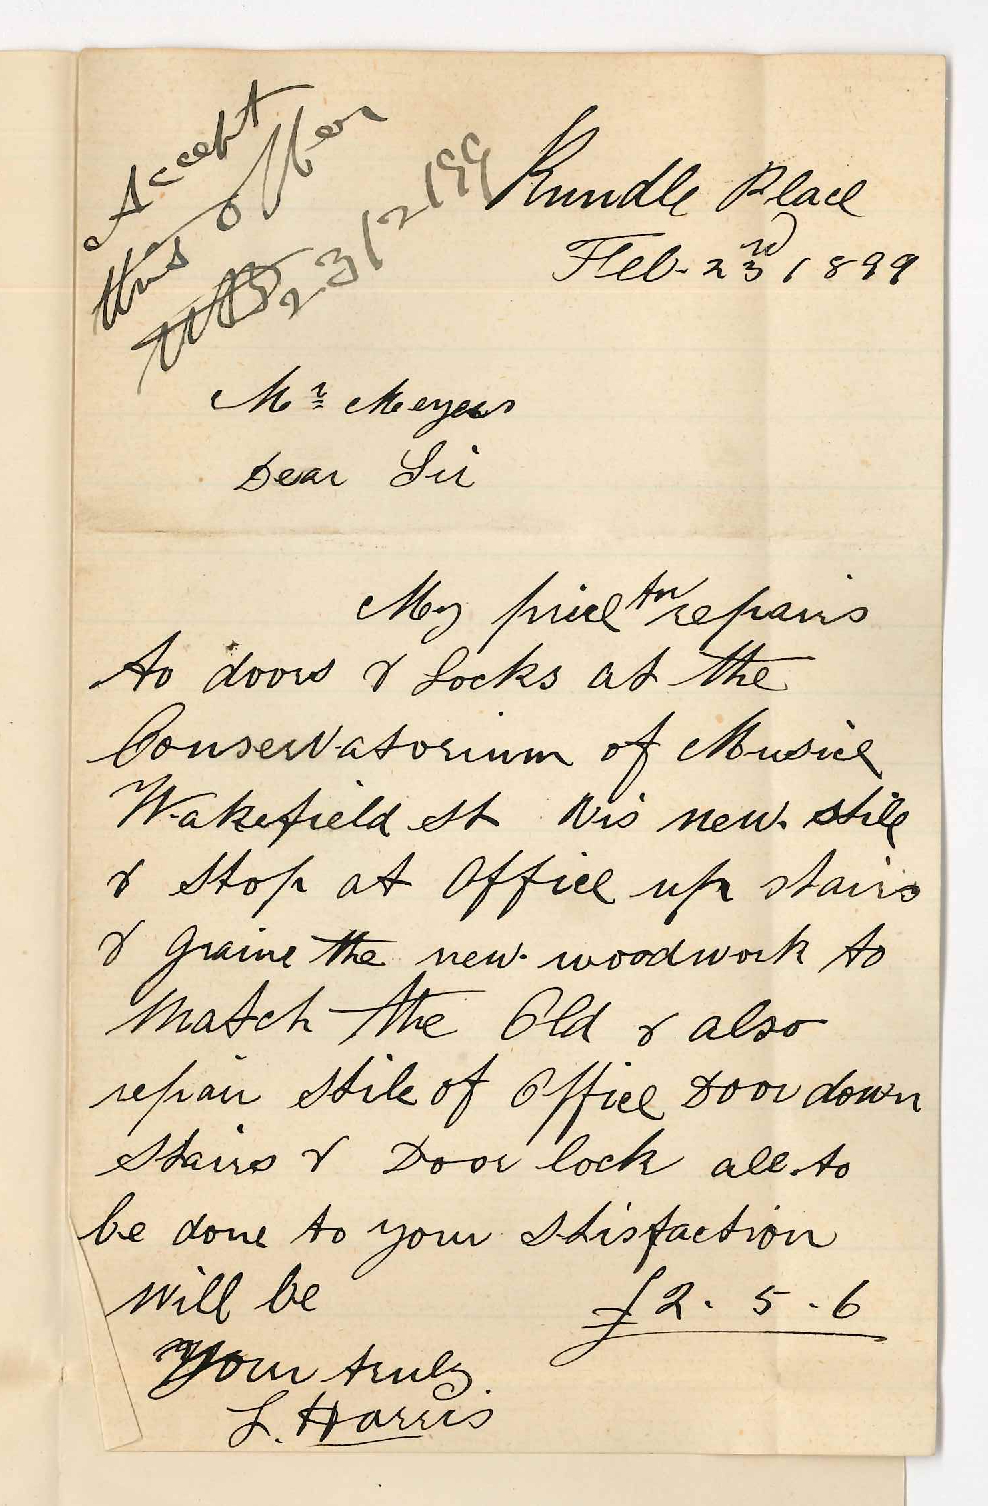 Accept
this offer
23/2/99
Rundle Place
Feb. 23rd 1899
Mr Meyers
Dear Sir
My price for repairs
to doors & Locks at the
Conservatorium of Music
Wakefield St Vis new stile
& stop at Office up stairs
& graine the new woodwork to
match the Old & also
repair stile of Office Door down
stairs & Door lock all to
be done to your stisfaction
will be £2. 5. 6
Your truly
L. Harris